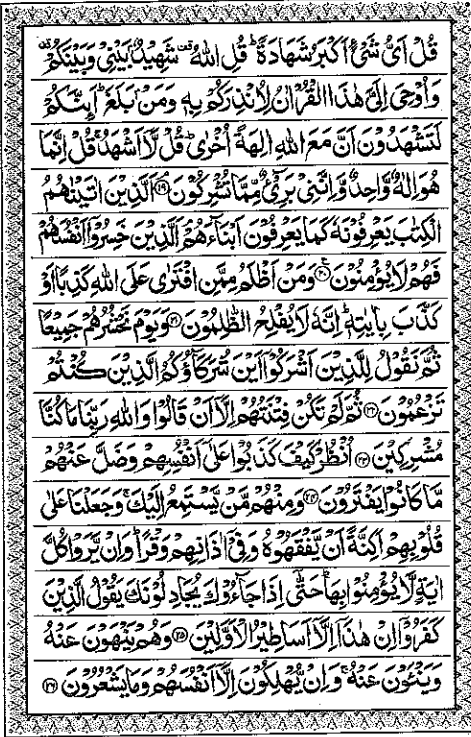 قُلْ اَیُّ شَیْءٍ اَكْبَرُ شَهَادَةً ؕ قُلِ اللّٰهُ ۙ۫ شَهِیْدٌۢ بَیْنِیْ وَبَیْنَكُمْ ۫
وَاُوْحِیَ اِلَیَّ هٰذَا الْقُرْاٰنُ لِاُنْذِرَكُمْ بِهٖ وَمَنْۢ بَلَغَ ؕ اَىِٕنَّكُمْ
لَتَشْهَدُوْنَ اَنَّ مَعَ اللّٰهِ اٰلِهَةً اُخْرٰی ؕ قُلْ لَّاۤ اَشْهَدُ ۚ قُلْ اِنَّمَا
هُوَ اِلٰهٌ وَّاحِدٌ وَّاِنَّنِیْ بَرِیْٓءٌ مِّمَّا تُشْرِكُوْنَ ۘ۝۱۹ اَلَّذِیْنَ اٰتَیْنٰهُمُ
الْكِتٰبَ یَعْرِفُوْنَهٗ كَمَا یَعْرِفُوْنَ اَبْنَآءَهُمْ ۘ اَلَّذِیْنَ خَسِرُوْۤا اَنْفُسَهُمْ
فَهُمْ لَا یُؤْمِنُوْنَ ۠۝۲۰ وَمَنْ اَظْلَمُ مِمَّنِ افْتَرٰی عَلَی اللّٰهِ كَذِبًا اَوْ
كَذَّبَ بِاٰیٰتِهٖ ؕ اِنَّهٗ لَا یُفْلِحُ الظّٰلِمُوْنَ ۝۲۱ وَیَوْمَ نَحْشُرُهُمْ جَمِیْعًا
ثُمَّ نَقُوْلُ لِلَّذِیْنَ اَشْرَكُوْۤا اَیْنَ شُرَكَآؤُكُمُ الَّذِیْنَ كُنْتُمْ
تَزْعُمُوْنَ ۝۲۲ ثُمَّ لَمْ تَكُنْ فِتْنَتُهُمْ اِلَّاۤ اَنْ قَالُوْا وَاللّٰهِ رَبِّنَا مَا كُنَّا
مُشْرِكِیْنَ ۝۲۳ اُنْظُرْ كَیْفَ كَذَبُوْا عَلٰۤی اَنْفُسِهِمْ وَضَلَّ عَنْهُمْ
مَّا كَانُوْا یَفْتَرُوْنَ ۝۲۴ وَمِنْهُمْ مَّنْ یَّسْتَمِعُ اِلَیْكَ ۚ وَجَعَلْنَا عَلٰی
قُلُوْبِهِمْ اَكِنَّةً اَنْ یَّفْقَهُوْهُ وَفِیْۤ اٰذَانِهِمْ وَقْرًا ؕ وَاِنْ یَّرَوْا كُلَّ
اٰیَةٍ لَّا یُؤْمِنُوْا بِهَا ؕ حَتّٰۤی اِذَا جَآءُوْكَ یُجَادِلُوْنَكَ یَقُوْلُ الَّذِیْنَ
كَفَرُوْۤا اِنْ هٰذَاۤ اِلَّاۤ اَسَاطِیْرُ الْاَوَّلِیْنَ ۝۲۵ وَهُمْ یَنْهَوْنَ عَنْهُ
وَیَنْـَٔوْنَ عَنْهُ ۚ وَاِنْ یُّهْلِكُوْنَ اِلَّاۤ اَنْفُسَهُمْ وَمَا یَشْعُرُوْنَ ۝۲۶